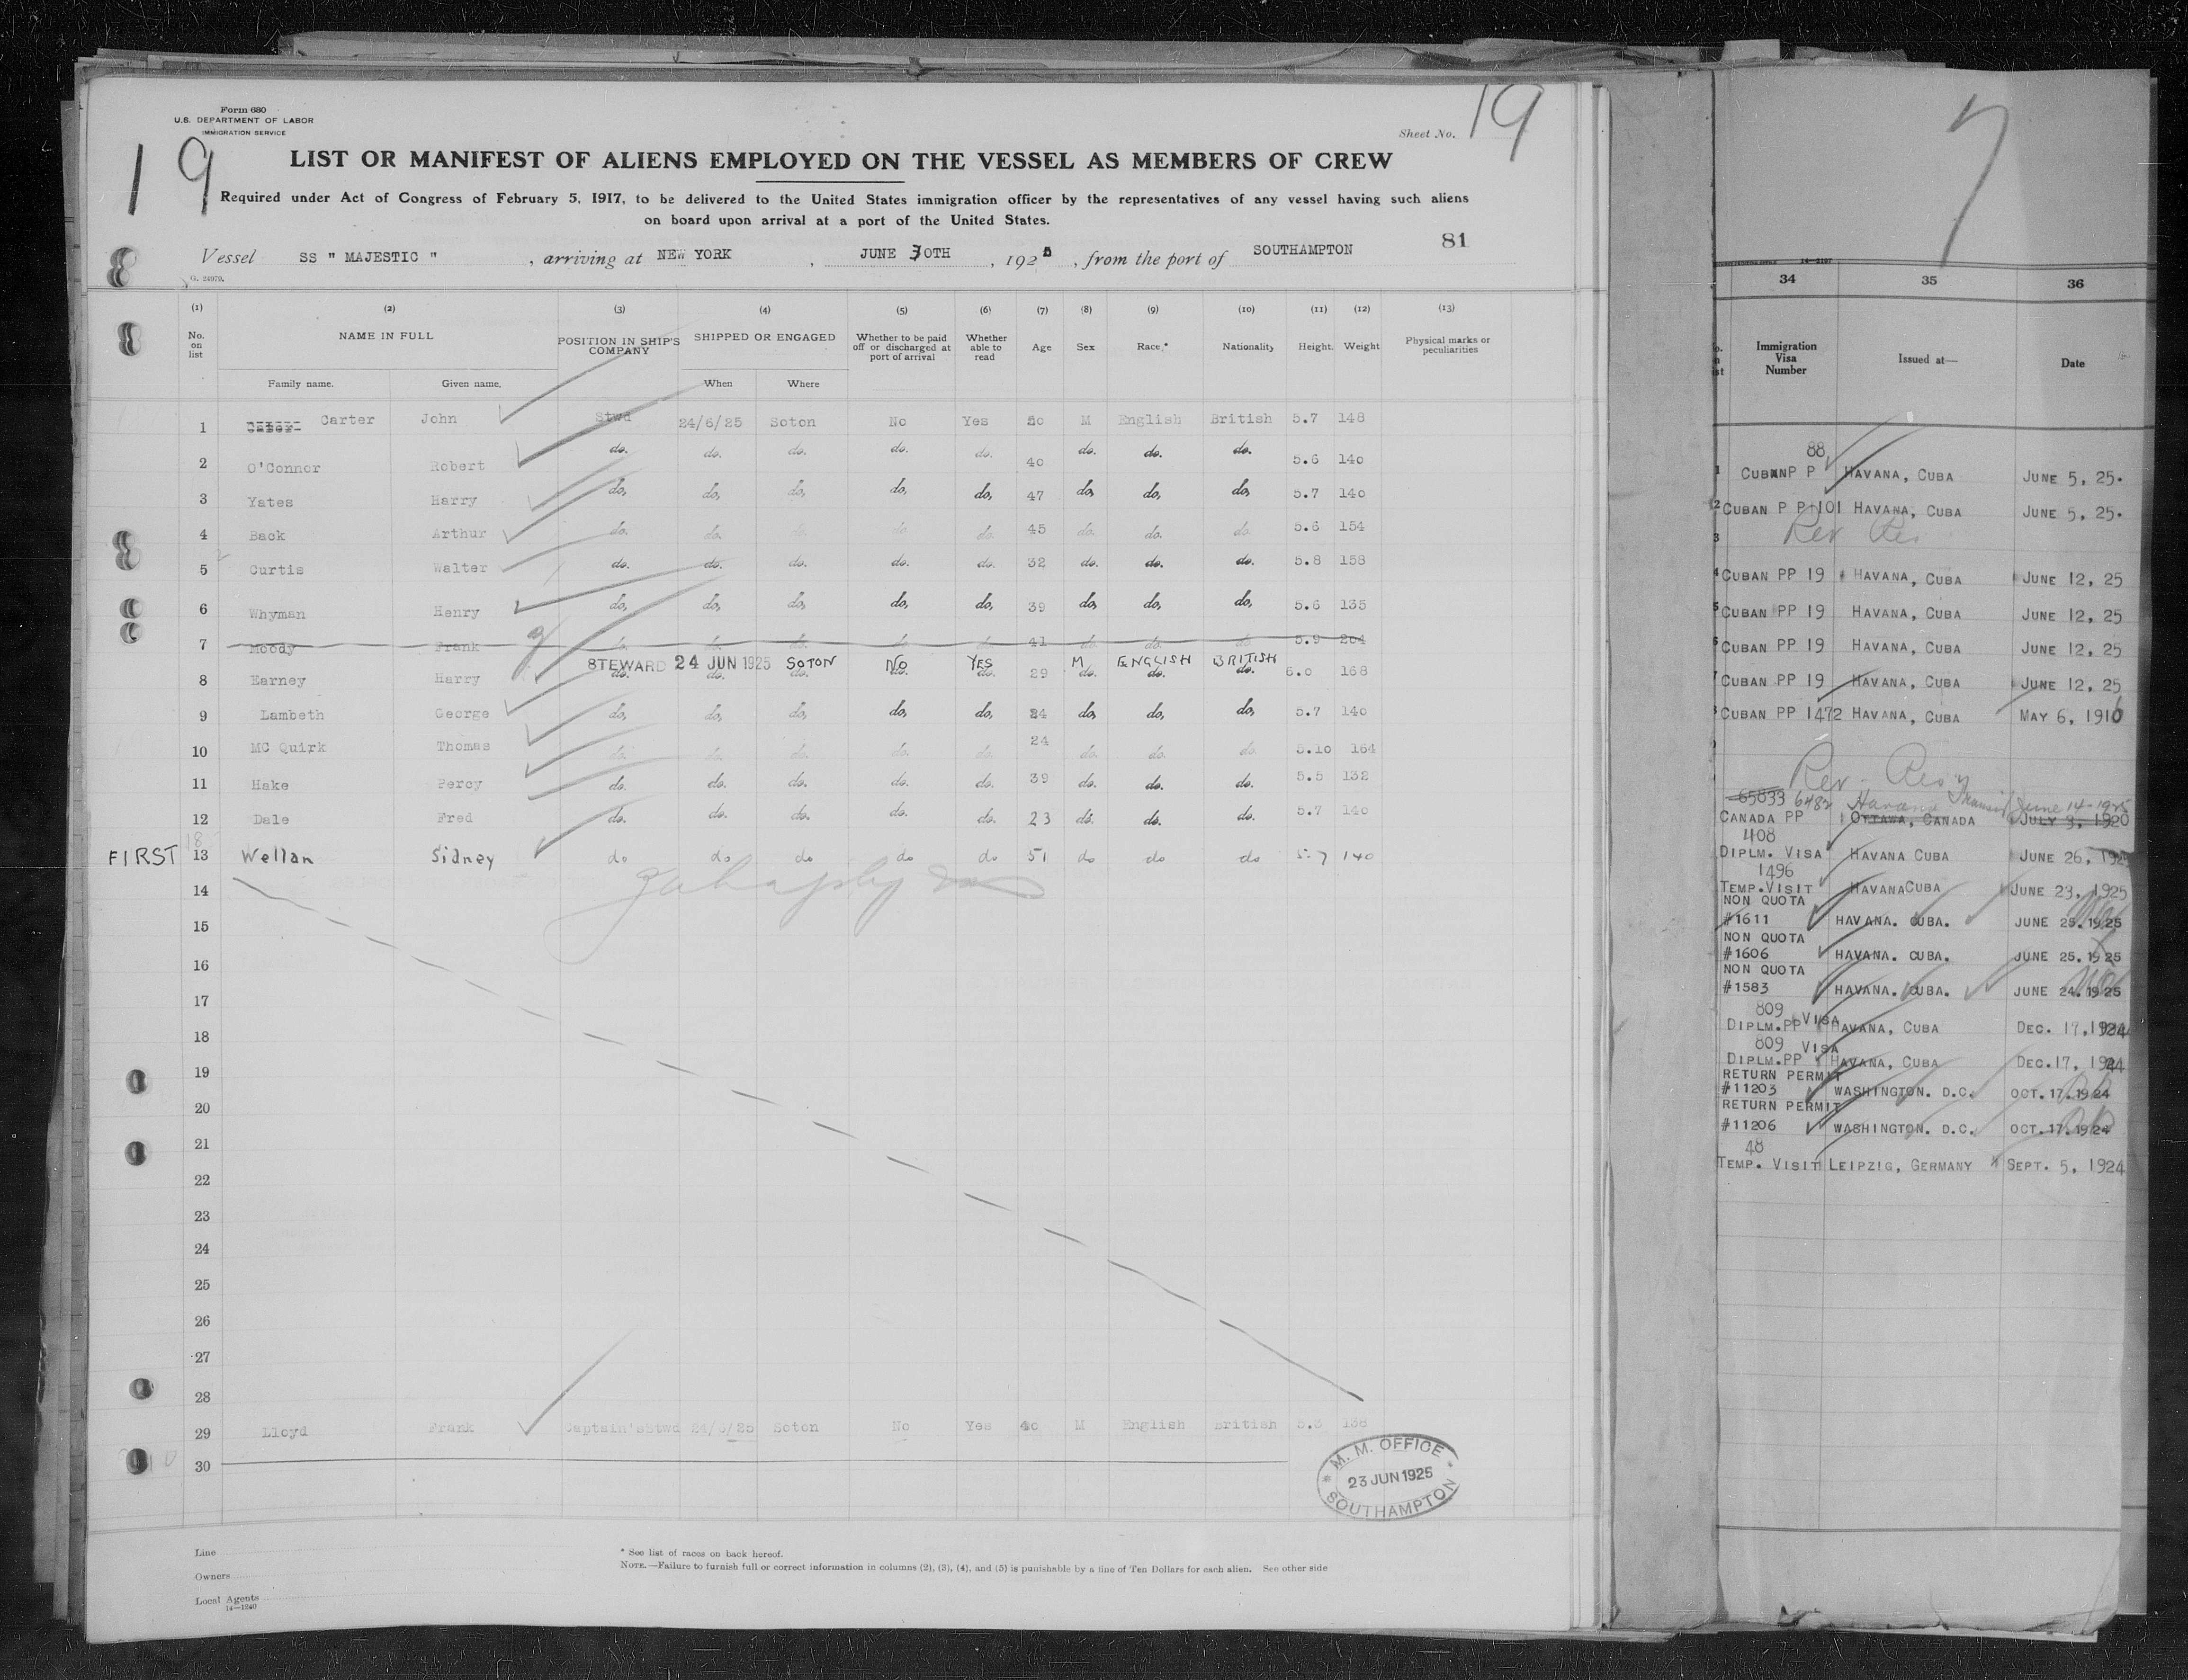 Form 680
U.S. DEPARTMENT OF LABOR
IMMIGRATION SERVICE
19
Sheet No. 19
LIST OR MANIFEST OF ALIENS EMPLOYED ON THE VESSEL AS MEMBERS OF CREW
Required under Act of Congress of February 5, 1917, to be delivered to the United States immigration officer by the representatives of any vessel having such aliens
on board upon arrival at a port of the United States.
81
Vessel SS " MAJESTIC " , arriving at NEW YORK , JUNE 30TH , 1925 , from the port of SOUTHAMPTON
G. 24979.
(1) (2) (3) (4) (5) (6) (7) (8) (9) (10) (11) (12) (13)
No. on list NAME IN FULL POSITION IN SHIP'S COMPANY SHIPPED OR ENGAGED Whether to be paid off or discharged at port of arrival Whether able to read Age Sex Race.* Nationality Height Weight Physical marks or peculiarities
Family name. Given name. When Where
1 Carter John Stwd 24/6/25 Soton No Yes 50 M English British 5.7 148
2 O'Connor Robert do. do. do. do. do. 40 do. do. do. 5.6 140
3 Yates Harry do, do, do, do, do, 47 do, do, do, 5.7 140
4 Back Arthur do. do. do. do. do. 45 do. do. do. 5.6 154
5 Curtis Walter do. do. do. do. do. 32 do. do. do. 5.8 158
6 Whyman Henry do, do, do, do, do, 39 do, do, do, 5.6 135
7 Moody Frank do. do. do. do. do. 41 do. do. do. 5.9 204
STEWARD 24 JUN 1925 SOTON NO YES M ENGLISH BRITISH
8 Earney Harry do. do. do. do. do. 29 do. do. 6.0 168
9 Lambeth George do, do, do, do, do, 24 do, do, do, 5.7 140
10 MC Quirk Thomas do. do. do. do. do. 24 do. do. do. 5.10 164
11 Hake Percy do. do. do. do. do. 39 do. do. do. 5.5 132
12 Dale Fred do. do. do. do. do. 23 do. do. do. 5.7 140
FIRST 13 Wellan Sidney do do do do do 51 do do do 5.7 140
14
15
16
17
18
19
20
21
22
23
24
25
26
27
28
29 Lloyd Frank Captain'sstwd 24/6/25 Soton No Yes 40 M English British 5.3 138
30
M. M. OFFICE
23 JUN 1925
SOUTHAMPTON
Line
Owners
Local Agents
14-1240
* See list of races on back hereof.
NOTE.—Failure to furnish full or correct information in columns (2), (3), (4), and (5) is punishable by a fine of Ten Dollars for each alien. See other side
7
34 35 36
Immigration Visa Number Issued at— Date
88
CUBAN P P HAVANA, CUBA JUNE 5, 25.
CUBAN P P 101 HAVANA, CUBA JUNE 5, 25.
3 Rev Res
4 CUBAN PP 19 HAVANA, CUBA JUNE 12, 25
5 CUBAN PP 19 HAVANA, CUBA JUNE 12, 25
6 CUBAN PP 19 HAVANA, CUBA JUNE 12, 25
7 CUBAN PP 19 HAVANA, CUBA JUNE 12, 25
CUBAN PP 1472 HAVANA, CUBA MAY 6, 1916
Rev-
65833 6482 Havana Transit June 14-1925
CANADA PP OTTAWA, CANADA JULY 3, 1920
408
DIPLM. VISA HAVANA CUBA JUNE 26, 1925
1496
TEMP. VISIT HAVANA CUBA JUNE 23, 1925
NON QUOTA
#1611 HAVANA. CUBA. JUNE 25. 1925
NON QUOTA
#1606 HAVANA. CUBA. JUNE 25. 1925
NON QUOTA
#1583 HAVANA. CUBA. JUNE 24. 1925
809 VISA
DIPLM. PP HAVANA, CUBA DEC. 17, 1924
809 VISA
DIPLM. PP HAVANA, CUBA DEC. 17, 1924
RETURN PERMIT
#11203 WASHINGTON. D.C. OCT. 17. 1924
RETURN PERMIT
#11206 WASHINGTON. D.C. OCT. 17. 1924
48
TEMP. VISIT LEIPZIG, GERMANY SEPT. 5, 1924